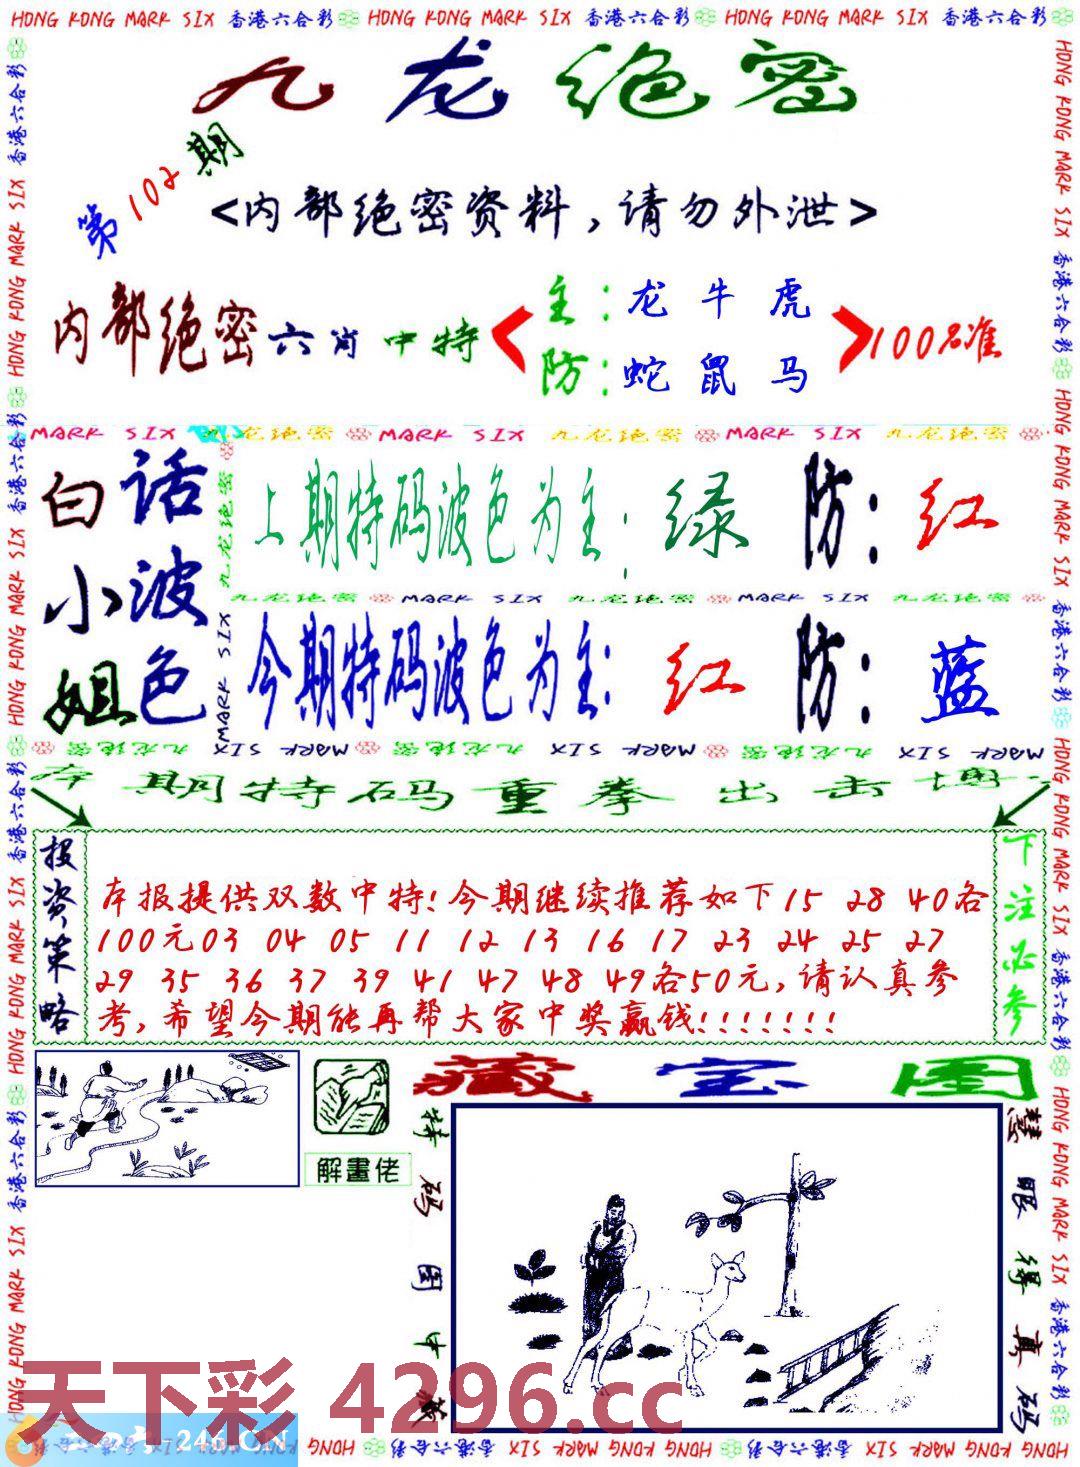 HONG KONG MARK SIX 香港六合彩 HONG KONG MARK SIX 香港六合彩 HONG KONG MARK SIX 香港六合彩
九龙绝密
第102期
<内部绝密资料,请勿外泄>
内部绝密六肖中特
主:龙牛虎
防:蛇鼠马
100%准
MARK SIX 九龙绝密 MARK SIX 九龙绝密 MARK SIX 九龙绝密
白话
小波
姐色
上期特码波色为主:绿 防:红
九龙绝密 MARK SIX 九龙绝密 MARK SIX 九龙绝密
今期特码波色为主:红 防:蓝
九龙绝密 MARK SIX 九龙绝密 MARK SIX 九龙绝密 MARK SIX
本期特码重拳出击博
投资策略
本报提供双数中特!今期继续推荐如下15 28 40各
100元03 04 05 11 12 13 16 17 23 24 25 27
29 35 36 37 39 41 47 48 49各50元,请认真参
考,希望今期能再帮大家中奖赢钱!!!!!!!
下注必参
解畫佬
藏宝图
特码图中藏
慧眼得真码
天下彩 4296.cc
246.CN
HONG KONG MARK SIX 香港六合彩